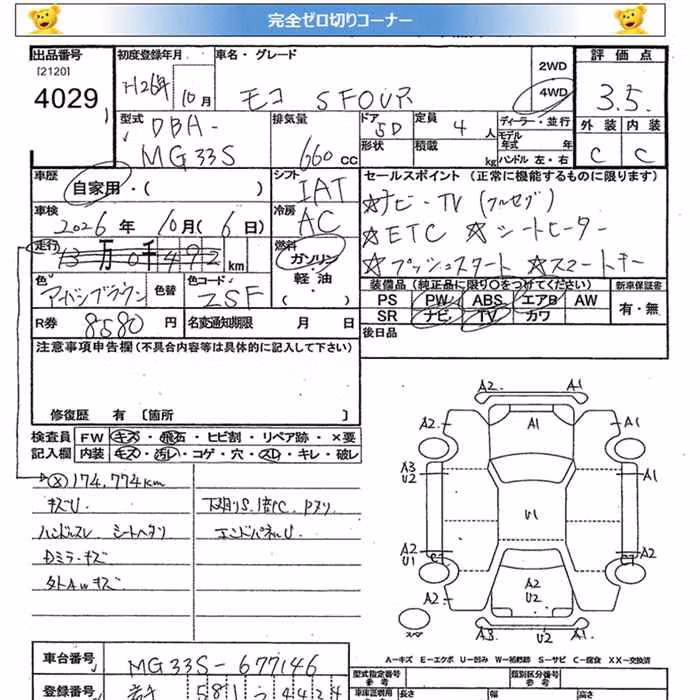 完全ゼロ切りコーナー
出品番号
[2120]
4029
初度登録年月
H26年 10月
車名・グレード
モコ S FOUR
2WD
4WD
評価点
3.5
外装 内装
C C
型式
DBA-
MG33S
排気量
660 CC
ドア
5D
形状
定員
4 人
積載
kg
ディーラー・並行
モデル
年式 年
ハンドル 左・右
車歴
自家用・( )
シフト
IAT
車検
2026年 10月(6日)
冷房
AC
走行
km
燃料
ガソリン・
軽油
・( )
色
アイバンブラウン
色替
色コード
ZSF
R券
8580 円
名変通知期限 月 日
セールスポイント(正常に機能するものに限ります)
☆ナビ・TV (フルセグ)
☆ETC ☆シートヒーター
☆プッシュスタート ☆スマートキー
装備品(純正品に限り〇をつけてください)
新車保証書
PS PW ABS エアB AW
SR ナビ TV カワ
有・無
後日品
注意事項申告欄(不具合内容等は具体的に記入して下さい)
修復歴 有 〔箇所 〕
検査員
記入欄
FW キズ・飛石・ヒビ割・リペア跡・×要
内装 キズ・汚レ・コゲ・穴・スレ・キレ・破レ
Ⓧ174,774km
キズU
ハンドルスレ シートヘタリ
Dミラーキズ
タトAwキズ
下廻りS.
エンドパネルU
A2 A1
A2 A1 A1
A3
U2 A1
U1
A2
U1 A2
A2
U2
A2 A1
スペア
A3 U2 A1
A−キズ E−エクボ U−凹み W−補修跡 S−サビ C−腐食 XX−交換済
車台番号
MG33S-677146
登録番号
581 4424
型式指定番号
参考
類別区分番号
参考
車庫証明用
長さ 幅 高さ